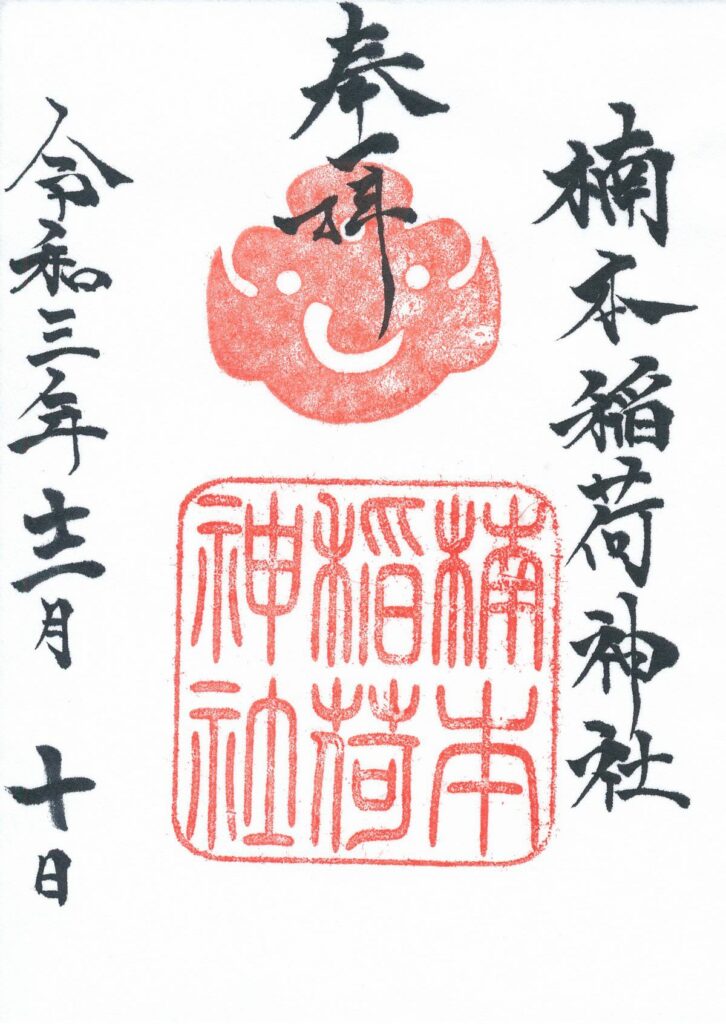 楠本稲荷神社
奉拝
楠本
稲荷
神社
令和三年十二月十日